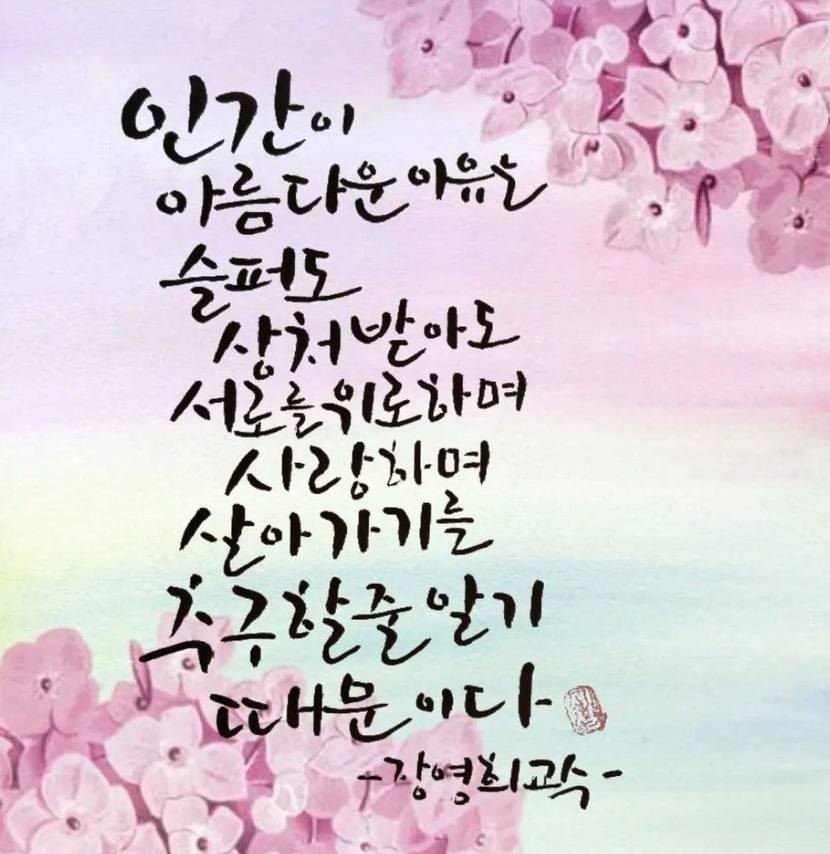 인간이
아름다운 이유는
슬퍼도
상처받아도
서로를 위로하며
사랑하며
살아가기를
추구할 줄 알기
때문이다
-장영희 교수-